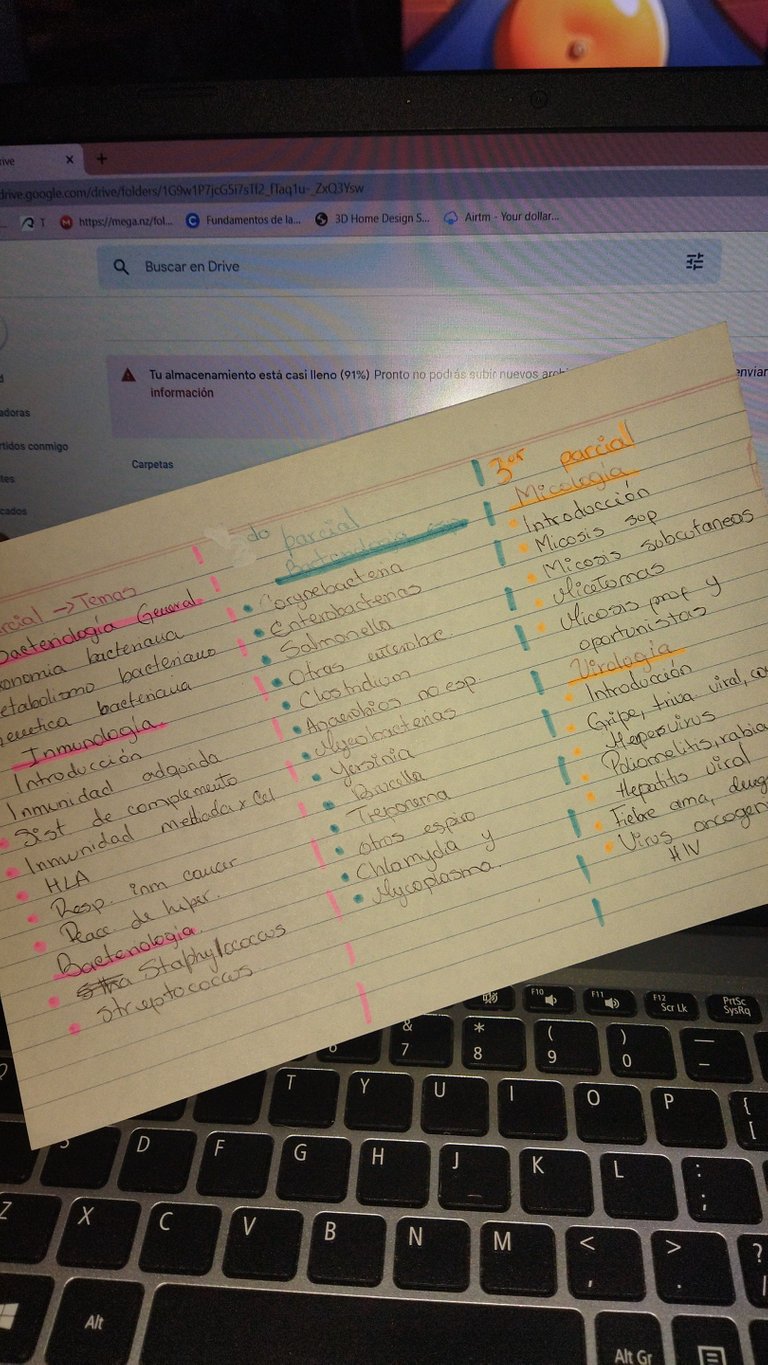 rive
×
+
drive.google.com/drive/folders/1G9w1P7jcG5i7sTf2_f1aq1u-_ZxQ3Ysw
https://mega.nz/fol...
Fundamentos de la...
3D Home Design S...
Airtm - Your dollar...
Buscar en Drive
Tu almacenamiento está casi lleno (91%) Pronto no podrás subir nuevos
enviar
información
adoras
rtidos conmigo
tes
cados
Carpetas
rcial → Temas
Bacteriología General
onomia bacteriana
etabolismo bacteriano
enetica bacteriana
Inmunología
Introducción
Inmunidad adquirida
Sist de complemento
Inmunidad mediada x Cel
HLA
Resp. inm cancer
Reacc de hiper.
Bacteriologia
Staphylococcus
Streptococcus
do parcial
Bacteriologia esp
Corynebacteria
Enterobacterias
Salmonella
Otras enterobac.
Clostridium
Anaerobios no esp
Mycobacterias
Yersinia
Brucella
Treponema
otros espiro
Chlamyda y
Mycoplasma
3er parcial
Micología
Introducción
Micosis sup
Micosis subcutaneos
Micetomas
Micosis prof y
oportunistas
Virología
Introducción
Gripe, triva viral, co
Herpesvirus
Poliomelitis, rabia
Hepatitis viral
Fiebre ama, deng
Virus oncogeni
HIV
F10
F11
F12
Scr Lk
PrtSc
SysRq
6
& 7
* 8
( 9
) 0
— –
T
Y
U
I
O
P
{ [
S
D
F
G
H
J
K
L
: ;
Z
X
C
V
B
N
M
< ,
> .
?
Alt
Alt Gr